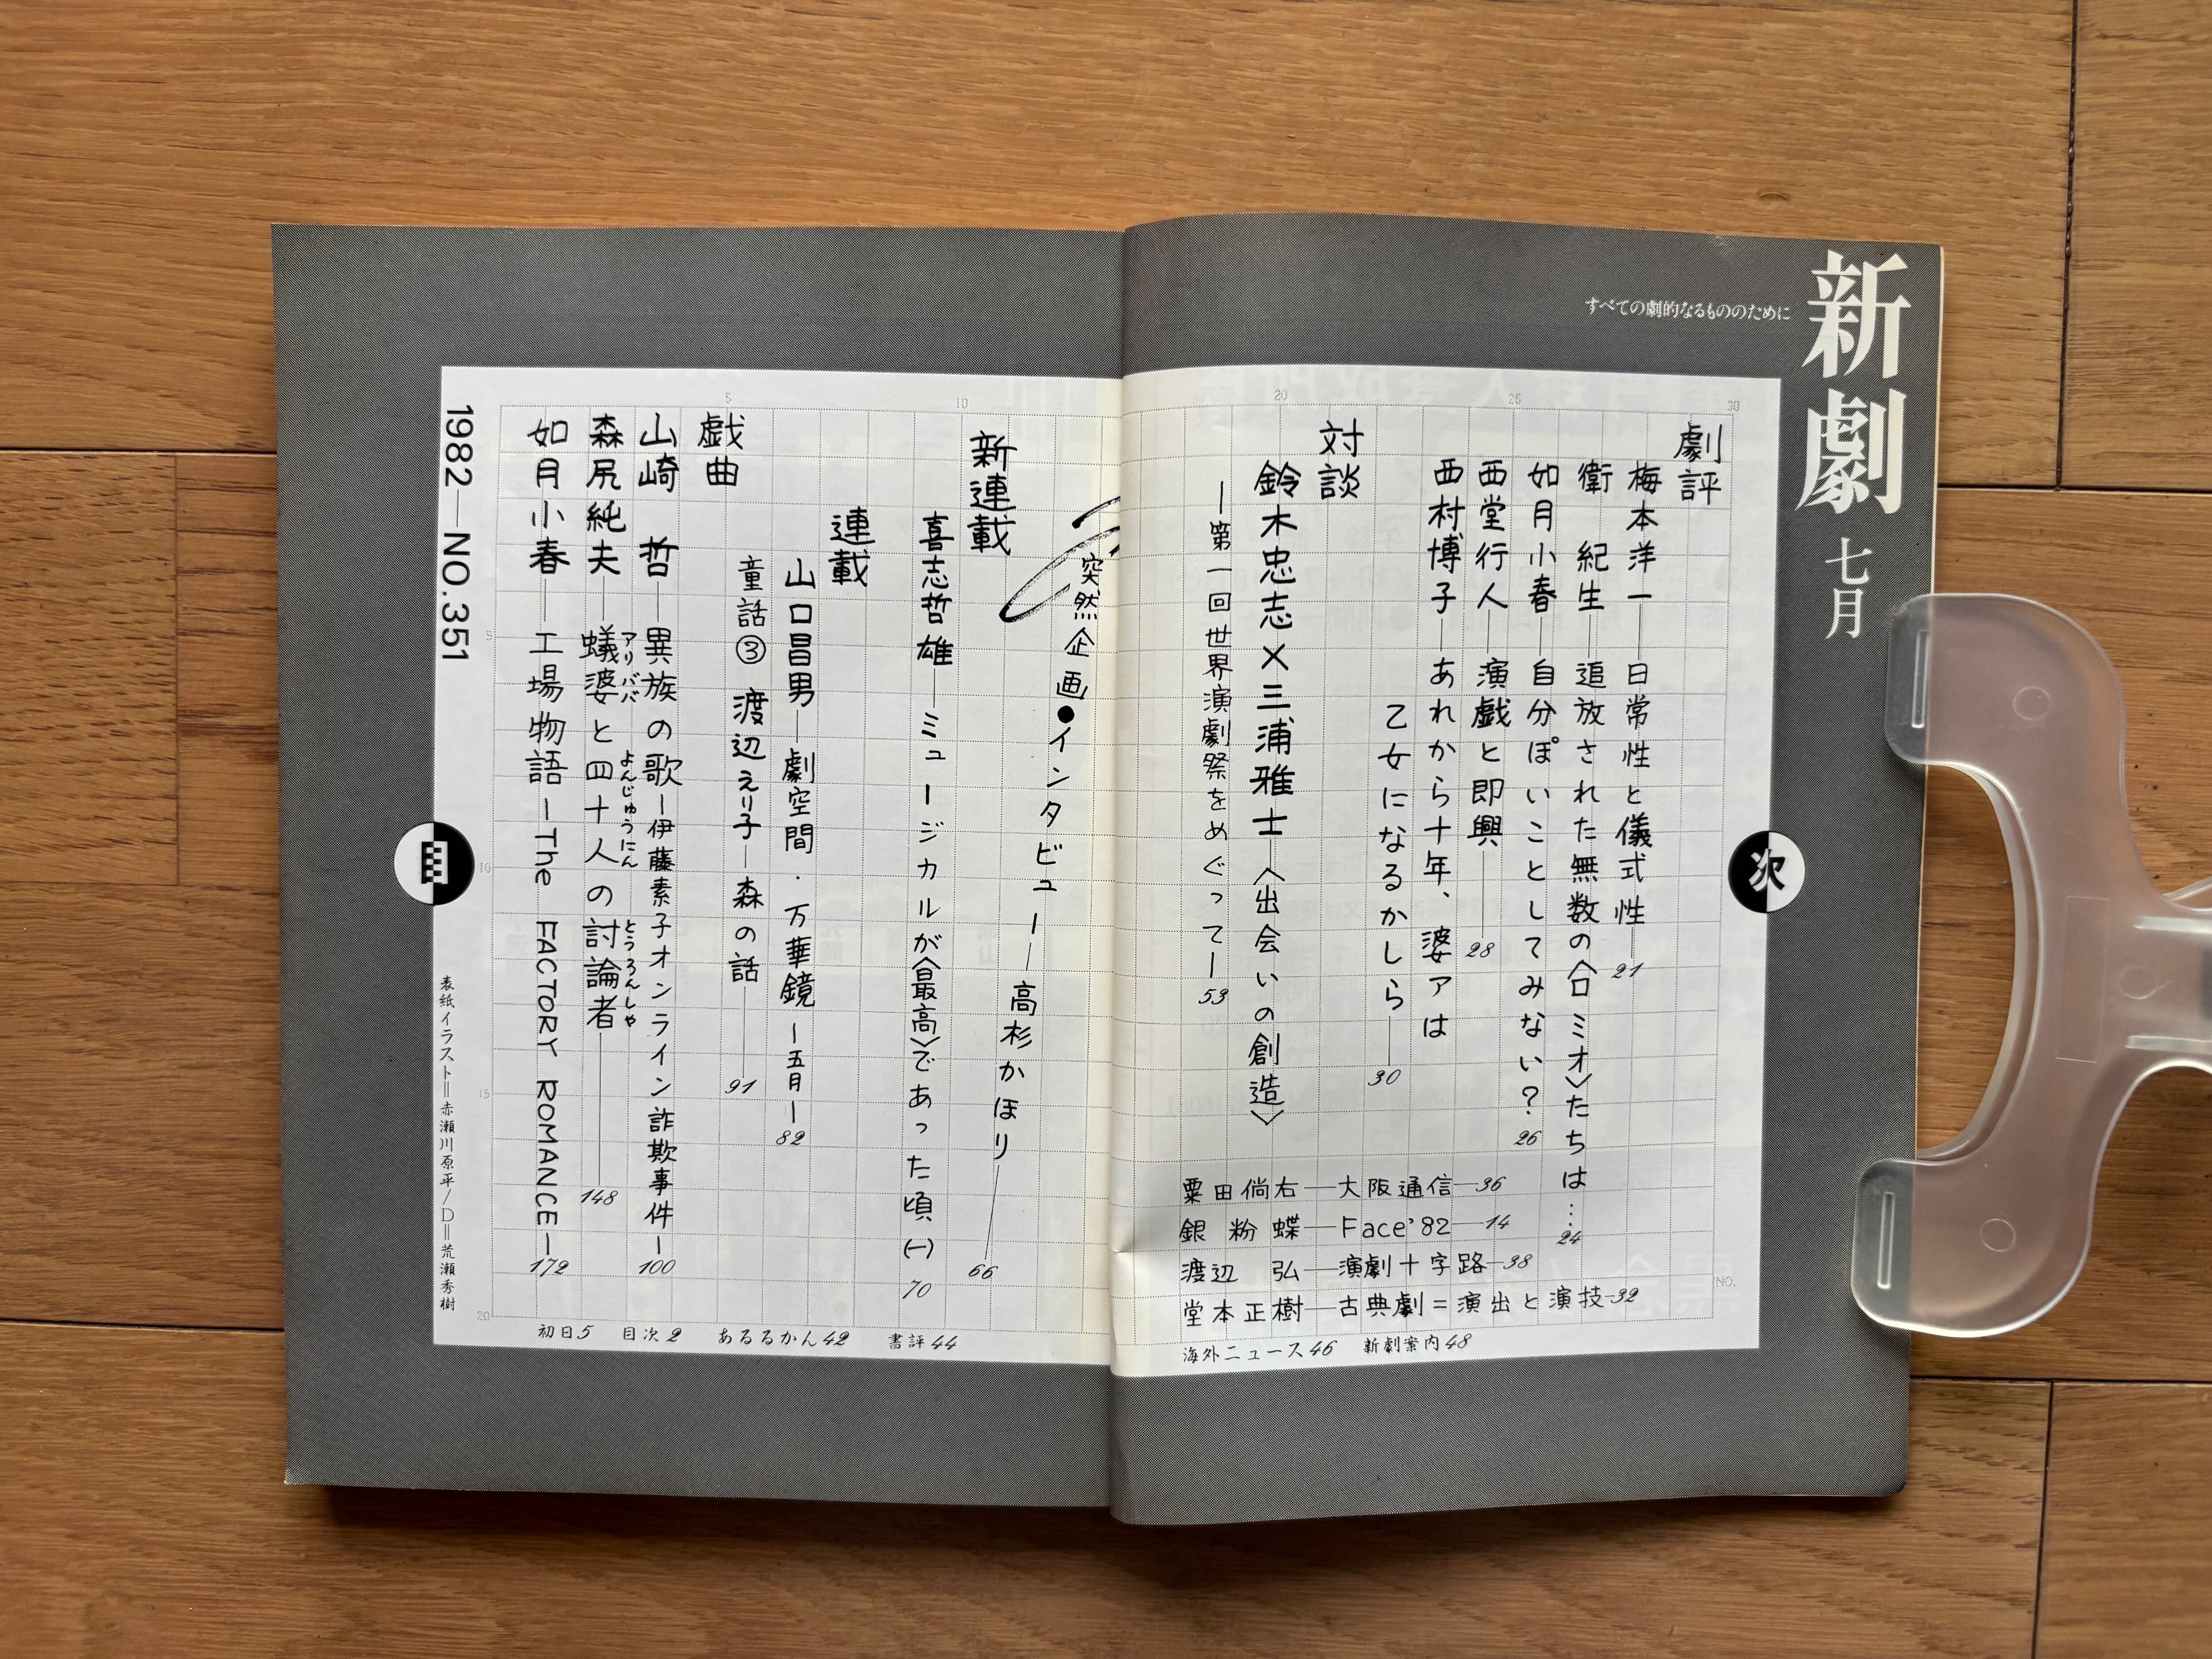 新劇 七月
すべての劇的なるもののために
目次
劇評
梅本洋一―日常性と儀式性―21
衛 紀生―追放された無数の〈ロミオ〉たちは…24
如月小春―自分ぽいことしてみない?26
西堂行人―演戯と即興―28
西村博子―あれから十年、婆アは
乙女になるかしら―30
対談
鈴木忠志×三浦雅士―〈出会いの創造〉
―第一回世界演劇祭をめぐって―53
粟田倘右―大阪通信―36
銀粉蝶―Face'82―14
渡辺 弘―演劇十字路―38
堂本正樹―古典劇=演出と演技―32
海外ニュース46 新劇案内48
突然企画●インタビュー―高杉かほり―66
新連載
喜志哲雄―ミュージカルが〈最高〉であった頃(一)70
連載
山口昌男―劇空間・万華鏡―五月―82
童話③ 渡辺えり子―森の話―91
戯曲
山崎 哲―異族の歌―伊藤素子オンライン詐欺事件―100
森尻純夫―蟻婆と四十人の討論者―148
アリババ よんじゅうにん とうろんしゃ
如月小春―工場物語―The FACTORY ROMANCE―172
初日5 目次2 あるるかん42 書評44
1982―NO.351
表紙イラスト=赤瀬川原平/D=荒瀬秀樹
5
10
20
25
30
5
10
15
20
NO.